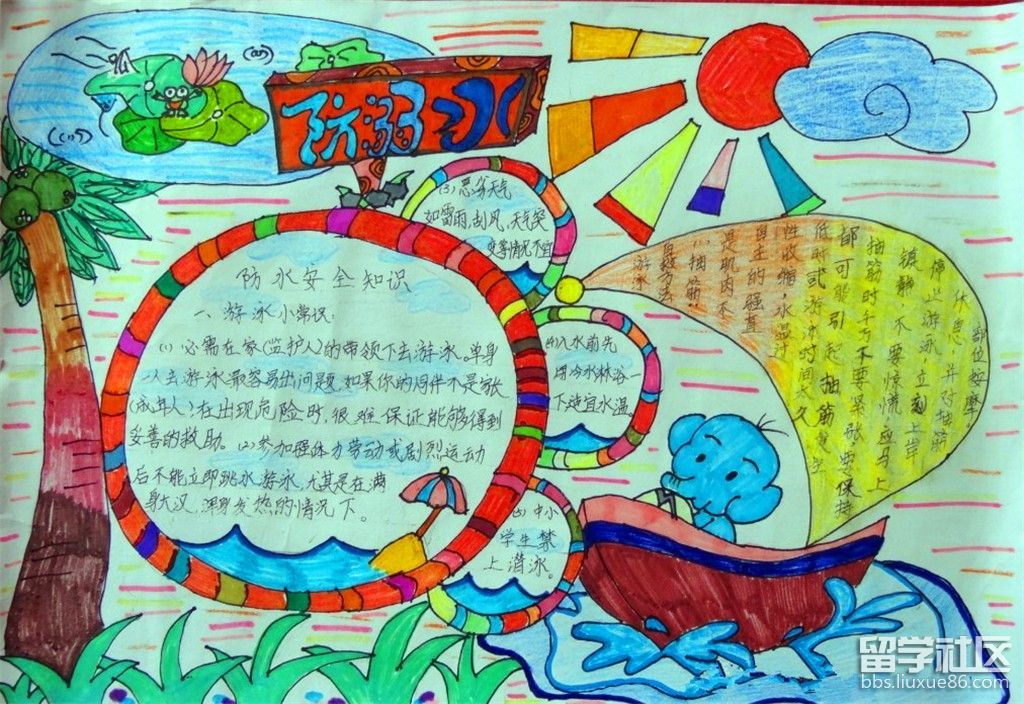 防溺水
防水安全知识
一、游泳小常识:
(1) 必需在家(监护人)的带领下去游泳。单身
一人去游泳最容易出问题,如果你的同伴不是家长
(成年人)在出现危险时,很难保证能够得到
妥善的救助。(2)参加强体力劳动或剧烈运动
后不能立即跳水游泳,尤其是在满
身大汉,浑身发热的情况下。
(3)恶劣天气
如雷雨,刮风,天气突
变等情况不宜
(4)入水前先
用冷水淋浴一
下适宜水温。
中小
学生禁
上潜泳。
游泳
自救方法
:抽筋:
是肌肉不
自主的强直
性收缩,水温
低时或游泳时间太久
都可能引起抽筋发生
抽筋时千万不要紧张要保持
镇静,不要惊慌应马上
停止游泳立刻上岸
休息,并对抽筋
部位按摩。
留学社区
bbs.liuxue86.com